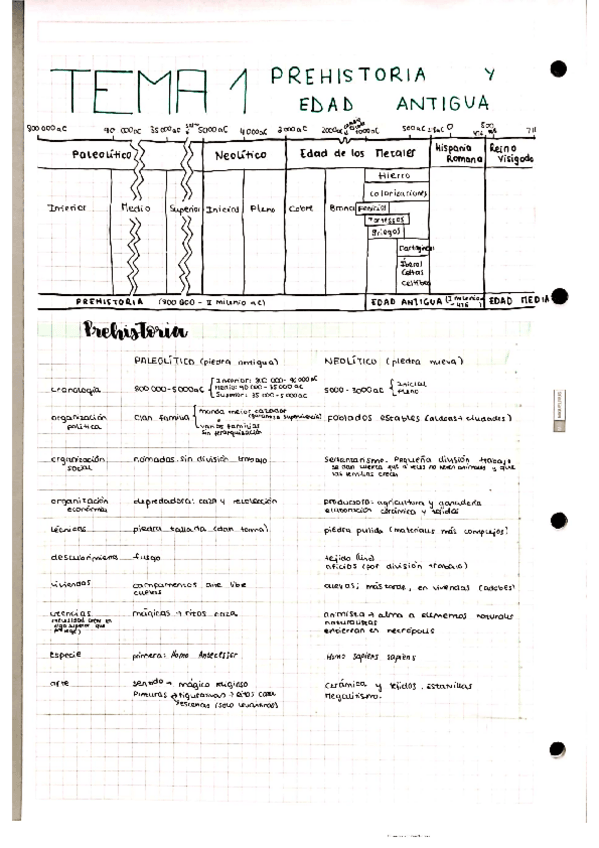 TEMA 1 PREHISTORIA Y
EDAD ANTIGUA
800 000 aC 90 000 aC 35 000 aC 5000 aC 4000 aC 3000 aC 2000 aC 1000 aC 500 aC 218 aC 0 711
Paleolítico Neolítico Edad de los Metales Hispania Romana Reino Visigodo
Inferior Medio Superior Inicial Pleno Cobre Bronce
Hierro
Colonizaciones
Fenicios
Tartessos
Griegos
Cartagineses
Íberos
Celtas
Celtíberos
PREHISTORIA (800 000 - I milenio aC) EDAD ANTIGUA (I milenio - 476) EDAD MEDIA
Prehistoria
PALEOLÍTICO (piedra antigua) NEOLÍTICO (piedra nueva)
cronología 800 000-5000 aC Inferior: 800 000-90 000 aC
Medio: 90 000-35 000 aC
Superior: 35 000-5000 aC
5000-3000 aC Inicial
Pleno
organización política clan familia manda mejor cazador
varias familias
sin jerarquización
poblados estables (aldeas + ciudades)
organización social nómadas sin división trabajo sedentarismo. Pequeña división trabajo
se dan cuenta que a veces no tienen animales y que
las semillas crecen
organización económica depredadora: caza y recolección productora: agricultura y ganadería
elaboración cerámica y tejidos
técnicas piedra tallada (dan forma) piedra pulida (materiales más complejos)
descubrimiento fuego tejido
oficios (por división trabajo)
viviendas campamentos aire libre
cuevas
cuevas; más tarde, en viviendas (adobes)
creencias mágicas → ritos caza animista → alma a elementos naturales
naturalistas
entierran en necrópolis
especie primera: Homo Antecessor Homo sapiens sapiens
arte sentido → mágico religioso
Pinturas → figurativas → ritos caza
escenas (solo levantinas)
Cerámica y tejidos. Estatuillas
Megalitismo.